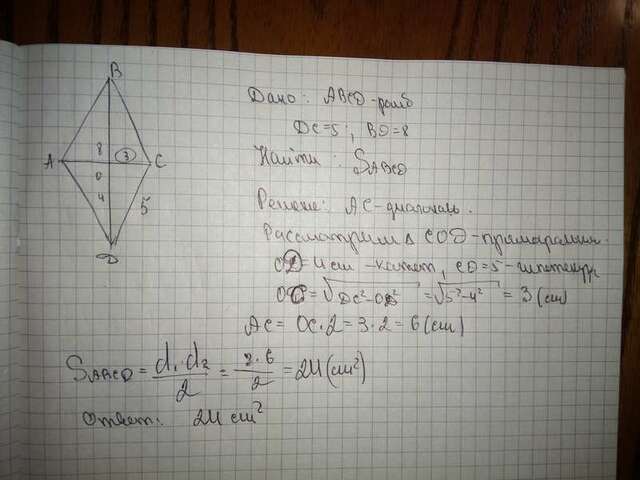 B
A
8
3
C
O
4
5
D
Дано: ABCD-ромб
DC=5, BD=8
Найти: S_ABCD
Решение: AC-диагональ.
Рассмотрим Δ COD-прямоугольн.
OD=4см -катет, CD=5-гипотенуза
OC=√DC²-OD²=√5²-4² = 3 (см)
AC= OC·2=3·2=6(см)
S_ABCD = d₁·d₂/2 = 8·6/2 = 24(см²)
Ответ: 24 см²